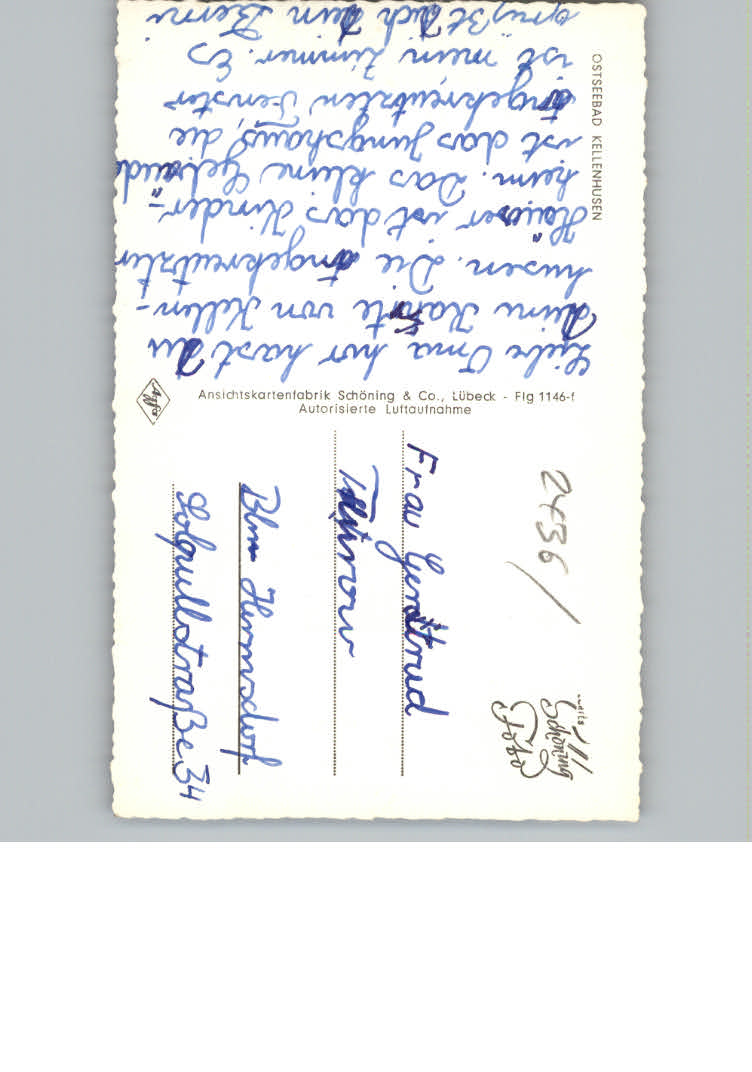 OSTSEEBAD KELLENHUSEN
Liebe Oma hir hast Du
Deine Karte von Kellen-
husen. Die angekreutzten
Häuser ist das Kinder-
heim. Das kleine Gebäude
ist das Jungshaus, die
angekreutzten Fenster
ist mein Zimmer. Es
grüßt Dich Dein Berni
Ansichtskartenfabrik Schöning & Co., Lübeck - Flg 1146-f
Autorisierte Luftaufnahme
Agfa
2436/
Schöning
Foto
Frau Gerdtrud
Bln Hermsdorf
34